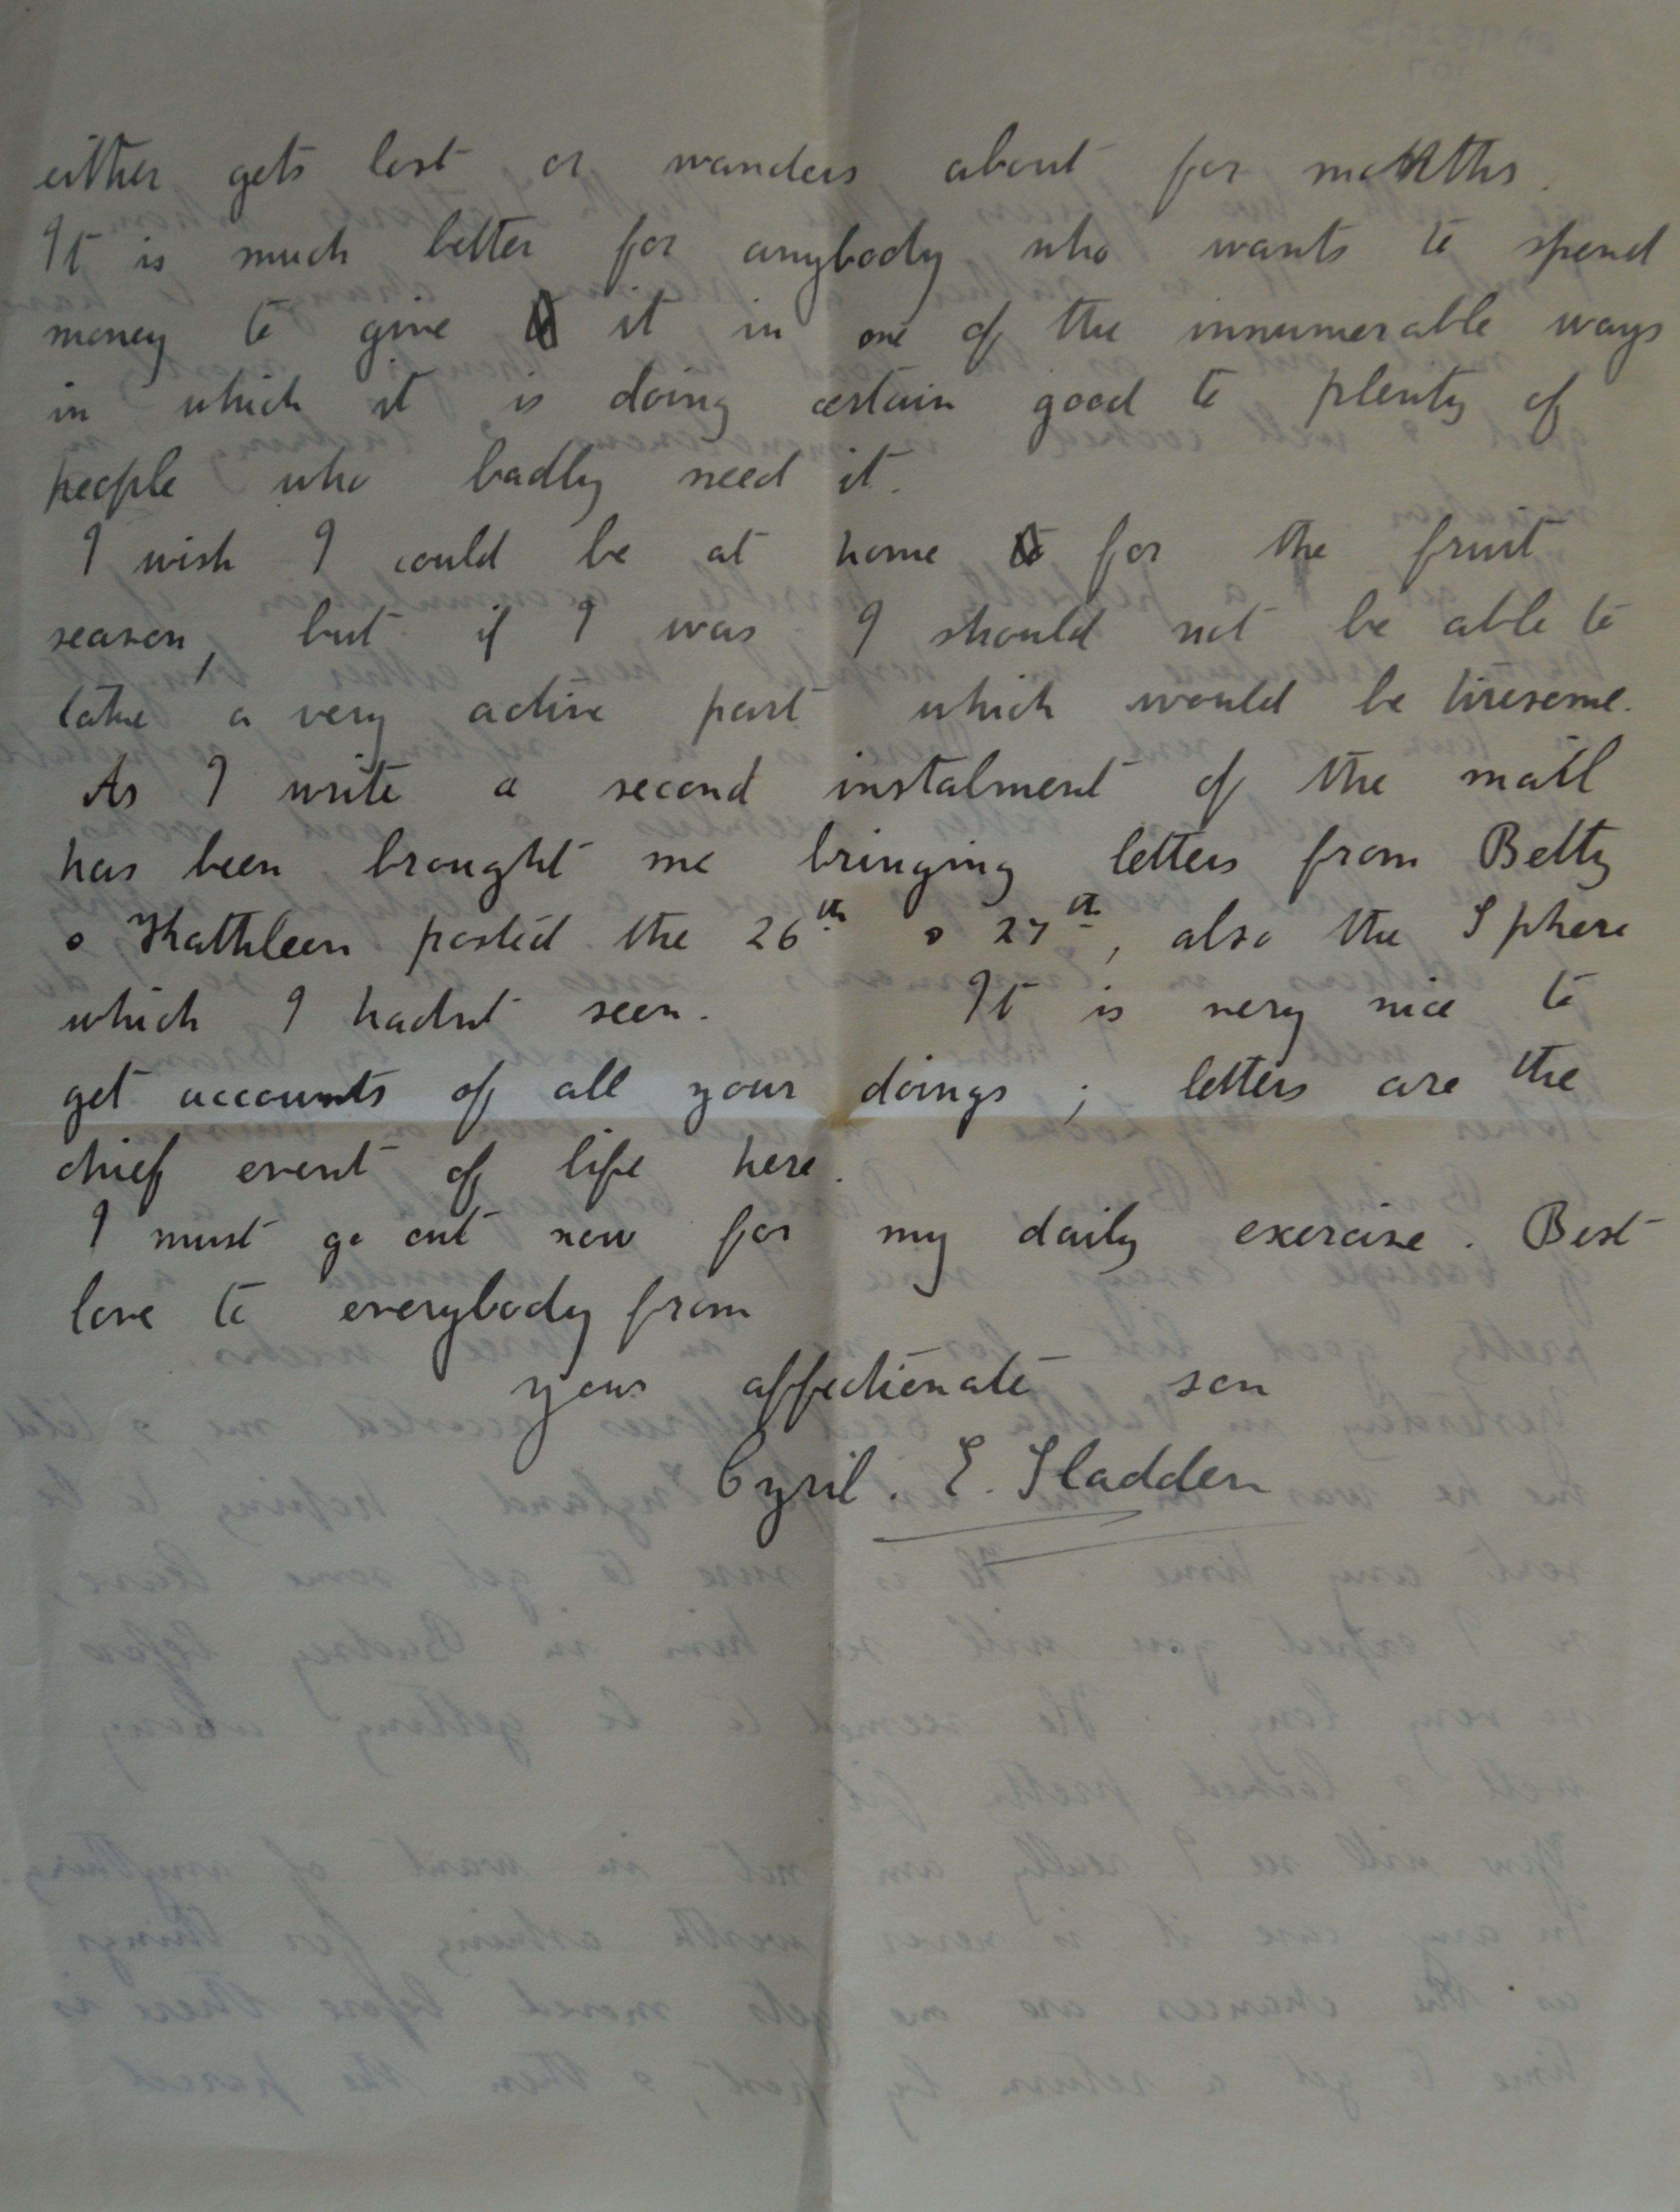 either gets lost or wanders about for months.
It is much better for anybody who wants to spend
money to give it in one of the innumerable ways
in which it is doing certain good to plenty of
people who badly need it.
I wish I could be at home for the fruit
season, but if I was I should not be able to
take a very active part which would be tiresome.
As I write a second instalment of the mail
has been brought me bringing letters from Betty
& Kathleen posted the 26th & 27th, also the Sphere
which I hadnt seen. It is very nice to
get accounts of all your doings; letters are the
chief event of life here.
I must go out now for my daily exercise. Best
love to everybody from
your affectionate son
Cyril. E. Sladden